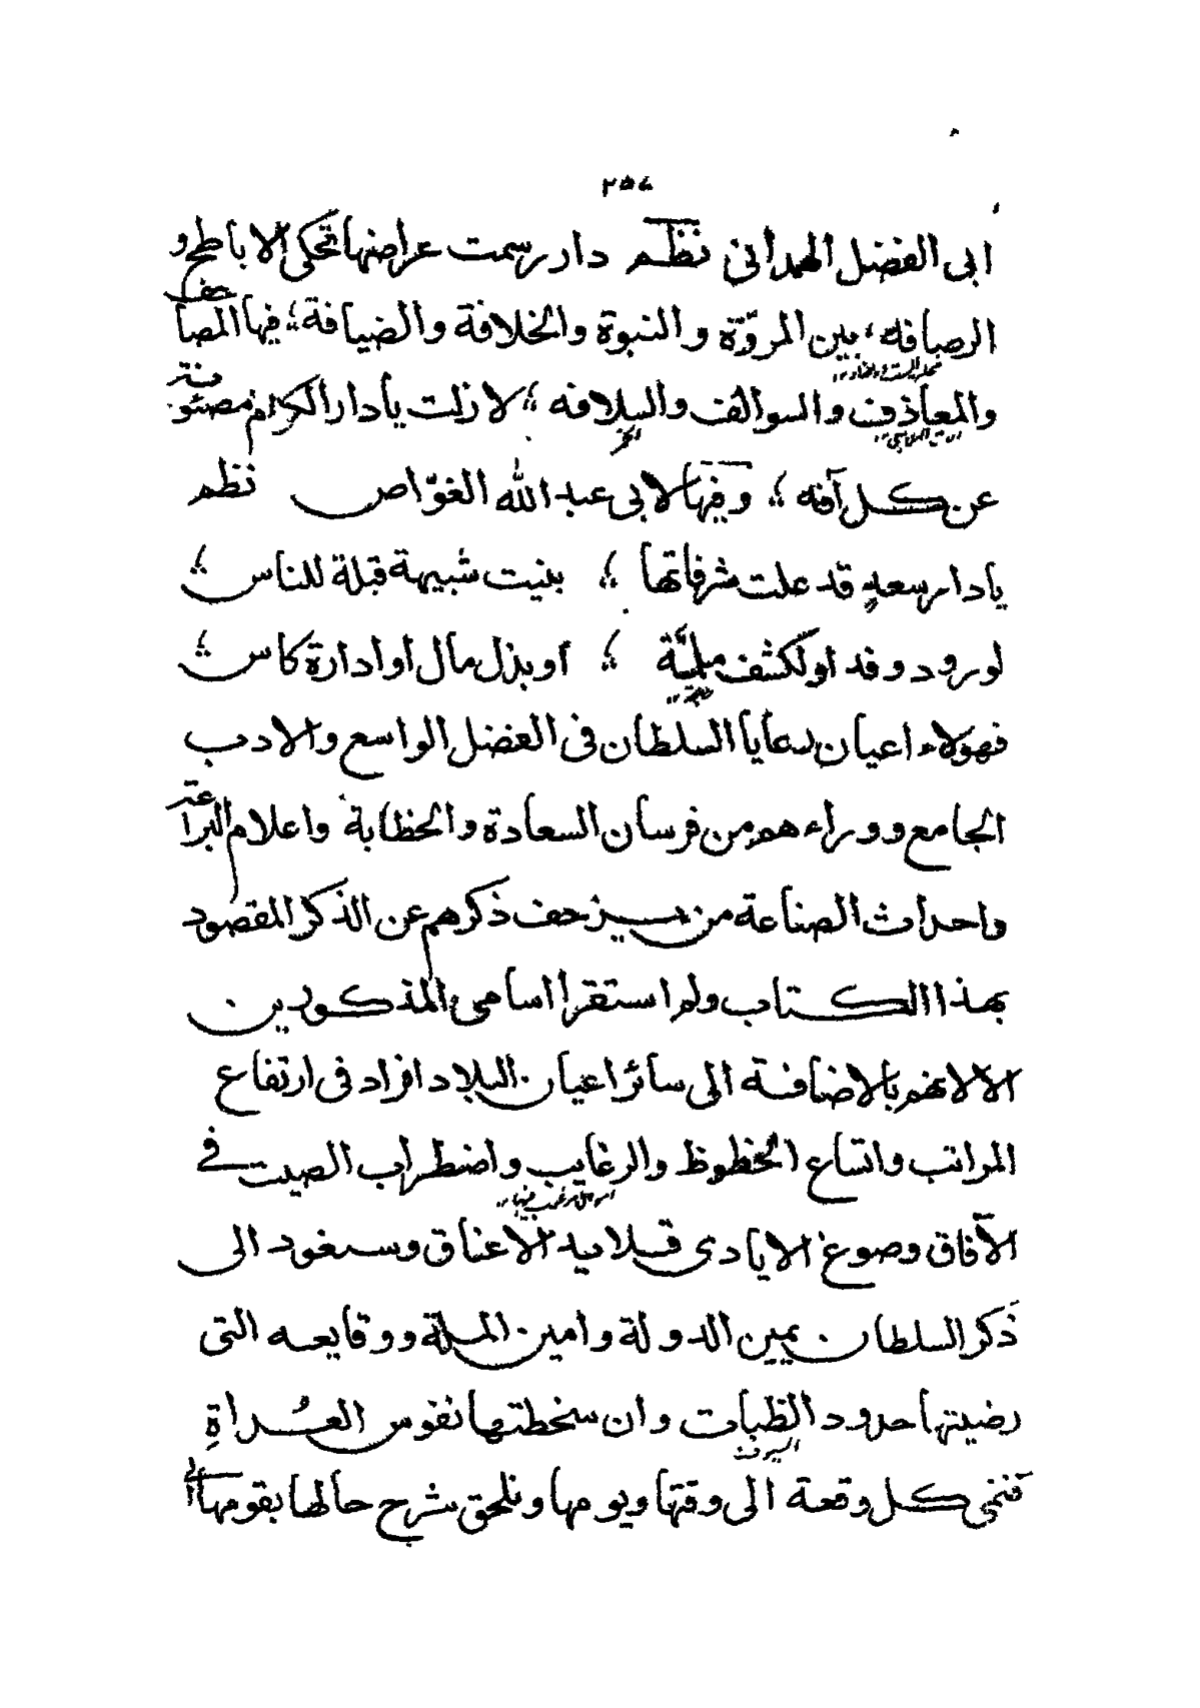 ٢٥٨
ابى الفضل الهمدانى نظم دار رسمت عراضها تحكى الاباطح و
الرصافه ؛ بين المروّة والنبوة والخلافة والضيافة ؛ فيها المصاحف
والمعازف والسوالف والسلافه ؛ لا زلت يا دار الكرام مصئونة
الخمر
عن كل آفه ؛ وفيها لابى عبد الله الغوّاص نظم
يا دار سعدٍ قد علت شرفاتها ؛ بنيت شبيهة قبلة للناس ؛
لورود وفد او لكشف ملمَّة ؛ او بذل مال او ادارة كاس ؛
فهولاء اعيان رعايا السلطان فى الفضل الواسع والادب
الجامع ووراءهم من فرسان السعادة والخطابة واعلام البراعة
واحداث الصناعة من يزحف ذكرهم عن الذكر المقصود
بهذا الكتاب ولم استقرا اسامى المذكورين
الا لانهم بالاضافة الى سائر اعيان البلاد افراد فى ارتفاع
المراتب واتساع الحظوظ والرغايب واضطراب الصيت فى
الآفاق وصوغ الايادى قلايد الاعناق وسنعود الى
ذكر السلطان يمين الدولة وامين الملة ووقايعه التى
رضيتها حدود الظبات وان سخطتها نفوس العُداةِ
السيوف
فننمى كل وقعة الى وقتها ويومها ونلحق شرح حالها بقومها الى